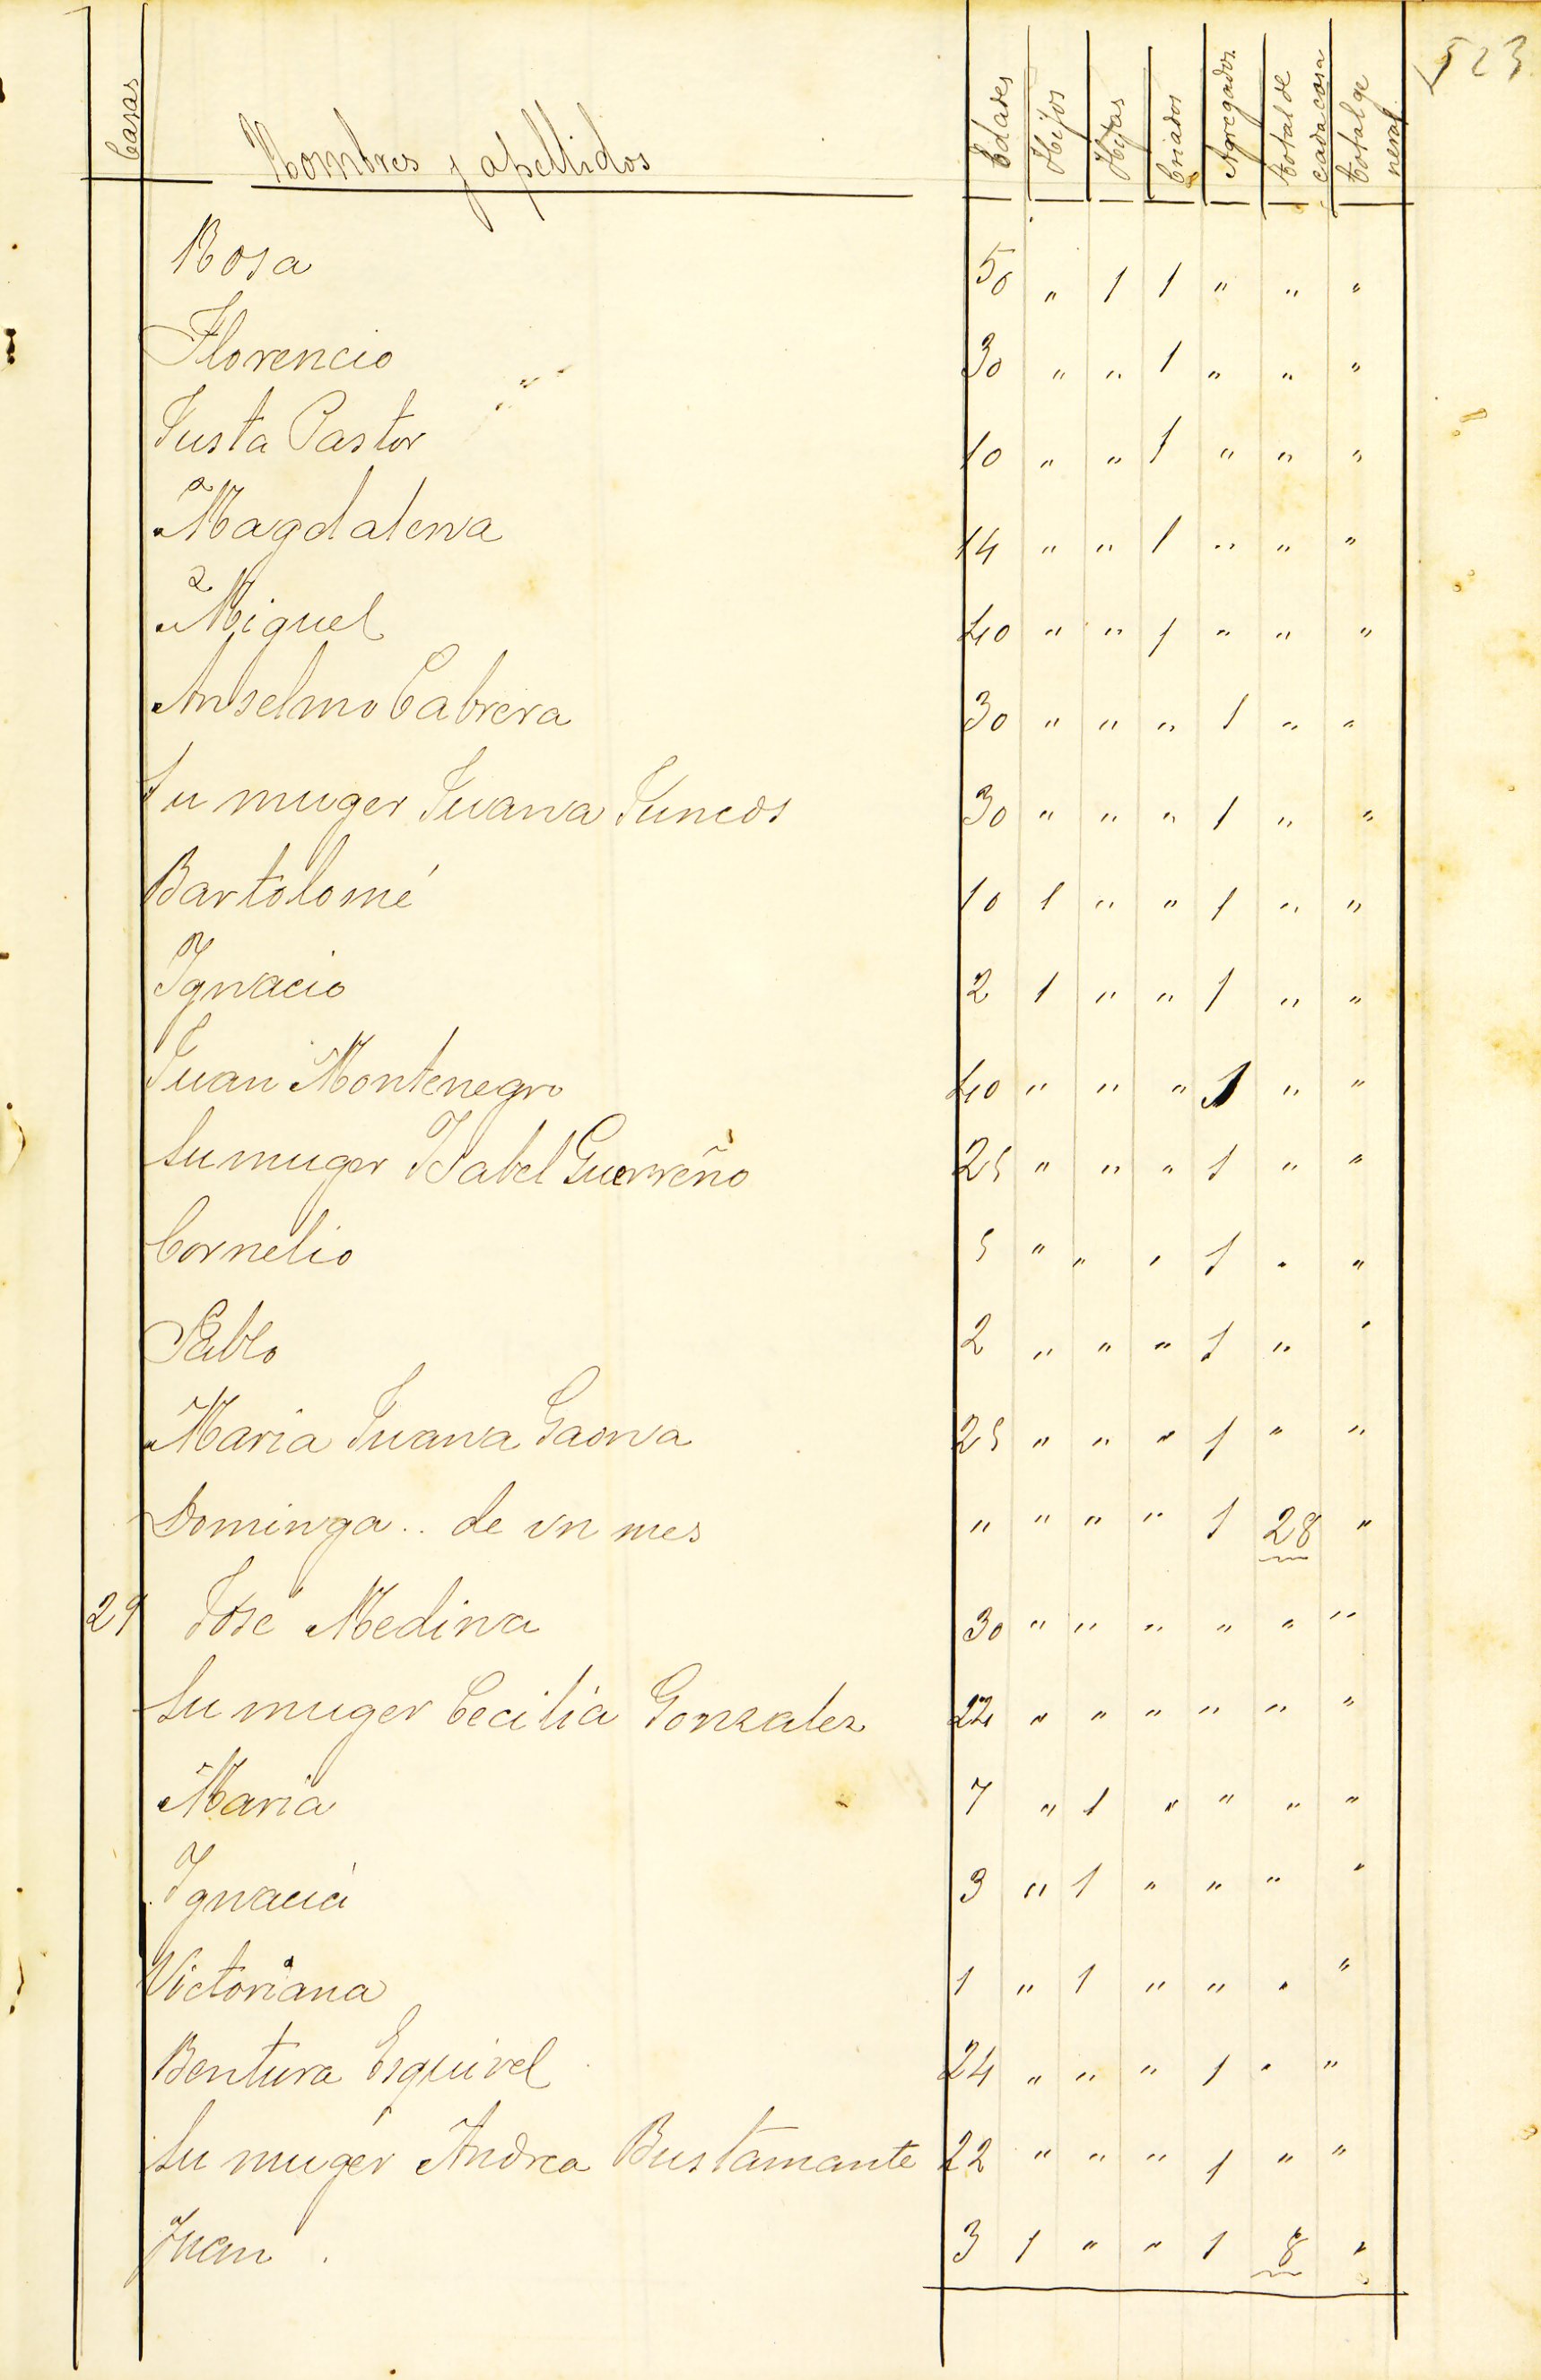 523
Casas Nombres y apellidos Edades Hijos Hijas Criados Agregados Total de cada casa Total general
Rosa 50 " 1 1 " " "
Florencio 30 " " 1 " " "
Justa Pastor 10 " " 1 " " "
Magdalena 14 " " 1 " " "
Miguel 40 " " 1 " " "
Anselmo Cabrera 30 " " " 1 " "
Su muger Juana Juncos 30 " " " 1 " "
Bartolomé 10 1 " " 1 " "
Ygnacio 2 1 " " 1 " "
Juan Montenegro 40 " " " 1 " "
Su muger Ysabel Guerreño 25 " " " 1 " "
Cornelio 5 " " " 1 " "
Pablo 2 " " " 1 " "
Maria Juana Gaona 25 " " " 1 " "
Dominga .. de un mes " " " " 1 28 "
29 José Medina 30 " " " " " "
Su muger Cecilia Gonzalez 22 " " " " " "
Maria 7 " 1 " " " "
Ygnacia 3 " 1 " " " "
Victoriana 1 " 1 " " " "
Bentura Esquivel 24 " " " 1 " "
Su muger Andrea Bustamante 22 " " " 1 " "
Juan . 3 1 " " 1 8 "